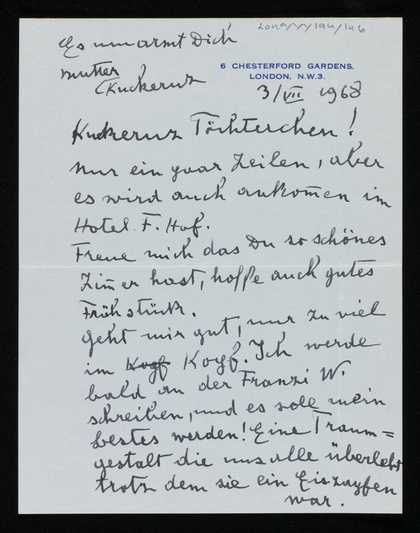 Es umarmt Dich
Mutter
Kuckeruz
6 CHESTERFORD GARDENS,
LONDON, N.W.3.
3/VII 1968
Kuckeruz Töchterchen!
nur ein paar Zeilen, aber
es wird auch ankom̄en im
Hotel F. Hof.
Freue mich das Du so schönes
Zim̄er hast, hoffe auch gutes
Frühstück.
Geht mir gut, nur zu viel
im Kopf. Ich werde
bald an der Franzi W.
schreiben, und es soll mein
bestes werden! Eine Traum=
gestalt die uns alle überlebt
trotz dem sie ein Eiszapfen
war.